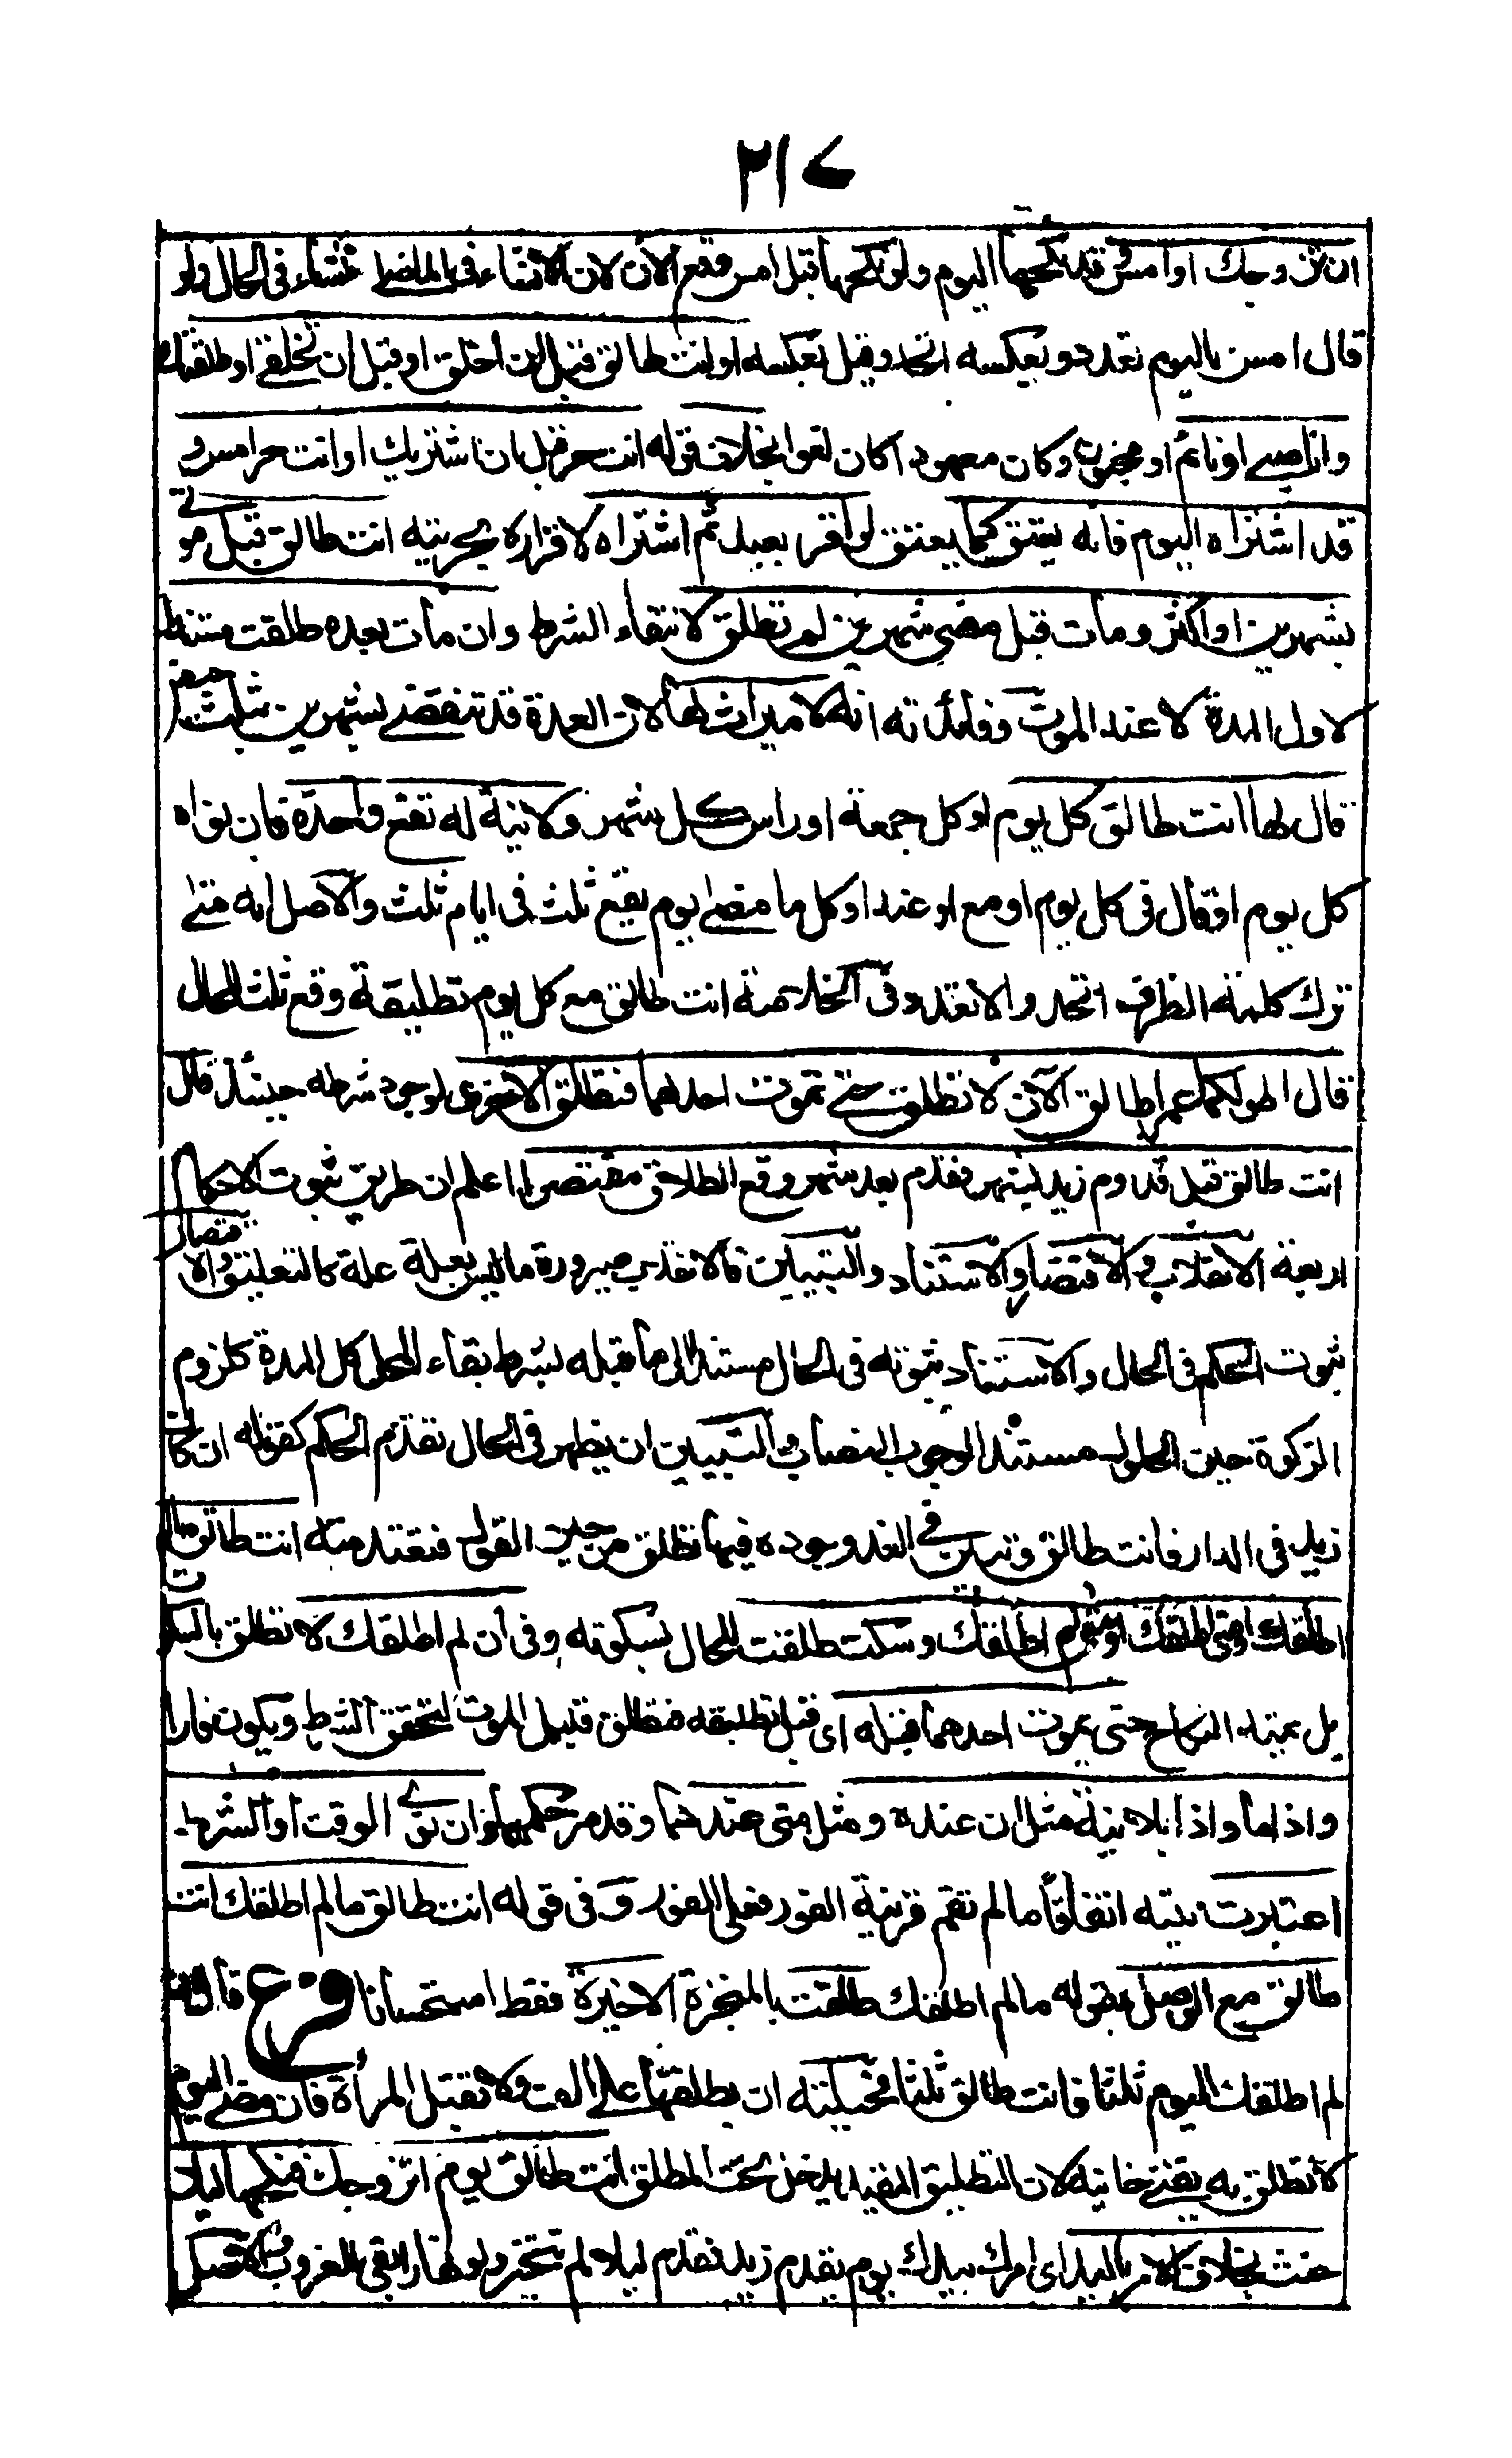 ٢١٧
ان تزوجك او امس وقد نكحها اليوم ولو نكحها قبل امس وقع الآن لان الانشاء فى الماضي انشاء فى الحال ولو
قال امس واليوم تعدد وبعكسه اتحد وقيل بعكسه او انت طالق قبل ان اخلق او قبل ان تخلقى او طلقتك
وانا صبي او نائم او مجنون وكان معهودا كان لغوا بخلاف قوله انت حر قبل ان اشتريك او انت حر امس و
قد اشتراه اليوم فانه يعتق كما يعتق لو اقر بعبد ثم اشتراه لاقراره بحريته انت طالق قبل موتي
بشهرين او اكثر ومات قبل مضى شهرين لم تطلق لانتفاء الشرط وان مات بعده طلقت مستندا
لاول المدة لا عند الموت وفائدته انه لا ميراث لها لان العدة قد تنقضى بشهرين بثلث حيض
قال لها انت طالق كل يوم او كل جمعة او راس كل شهر ولا نية له تقع واحدة فان نواه
كل يوم او قال فى كل يوم او مع او عند او كل ما مضى يوم يقع ثلث فى ايام ثلث والاصل انه متى
ترك كلمة الظرف اتحد والا تعدد وفى الخلاصة انت طالق مع كل يوم تطليقة وقع ثلث للحال
قال اطولكما عمرا طالق الآن لا تطلق حتى تموت احدهما فتطلق الاخرى لوجود شرطه حينئذ قال
انت طالق قبل قدوم زيد بشهر فقدم بعد شهر وقع الطلاق مقتصرا اعلم ان طريق ثبوت الاحكام
اربعة الانقلاب والاقتصار والاستناد والتبيين فالانقلاب صيرورة ما ليس بعلة علة كالتعليق والاقتصار
ثبوت الحكم فى الحال والاستناد ثبوته فى الحال مستندا الى ما قبله بشرط بقاء المحل كل المدة كلزوم
الزكوة حين الحلول مستندا لوجوب النصاب والتبيين ان يظهر فى الحال تقدم الحكم كقوله ان كان
زيد فى الدار فانت طالق وتبين فى الغد وجوده فيها تطلق من حين القول فتعتد منه انت طالق ما لم
اطلقك او متى لم اطلقك او متى ما لم اطلقك وسكت طلقت للحال بسكوته وفى ان لم اطلقك لا تطلق بالسكوت
بل يمتد النكاح حتى يموت احدهما قبله اى قبل تطليقه فتطلق قبيل الموت لتحقق الشرط ويكون فارا
واذا ما واذا بلا نية مثل ان عنده ومثل متى عندهما وقد مر حكمهما وان نوى الوقت او الشرط
اعتبرت نيته اتفاقا ما لم تقم قرينة الفور فعلى الفور وفى قوله انت طالق ما لم اطلقك انت
طالق مع الوصل بقوله ما لم اطلقك طلقت بالمنجزة الاخيرة فقط استحسانا فرع قال ان
لم اطلقك اليوم ثلثا فانت طالق ثلثا فحيلته ان يطلقها على الف ولا تقبل المرأة فان مضى اليوم
لا تطلق به يفتى خانية لان التطليق المقيد يدخل تحت المطلق انت طالق يوم اتزوجك فنكحها ليلا
حنث بخلاف الامر باليد اى امرك بيدك يوم يقدم زيد فقدم ليلا لم تتخير ولو نهارا بقى للغروب والاصل